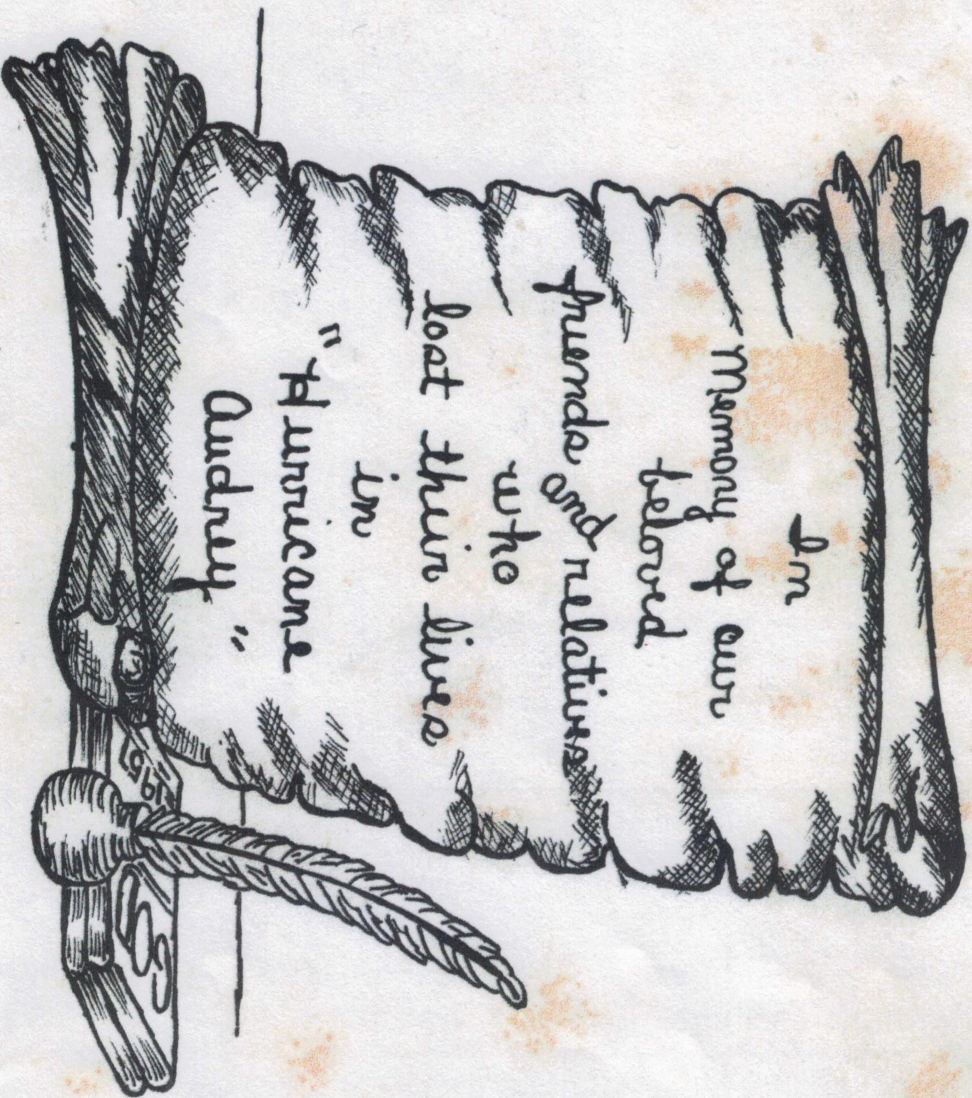 In
Memory of our
beloved
friends and relatives
who
lost their lives
in
"Hurricane
Audrey"